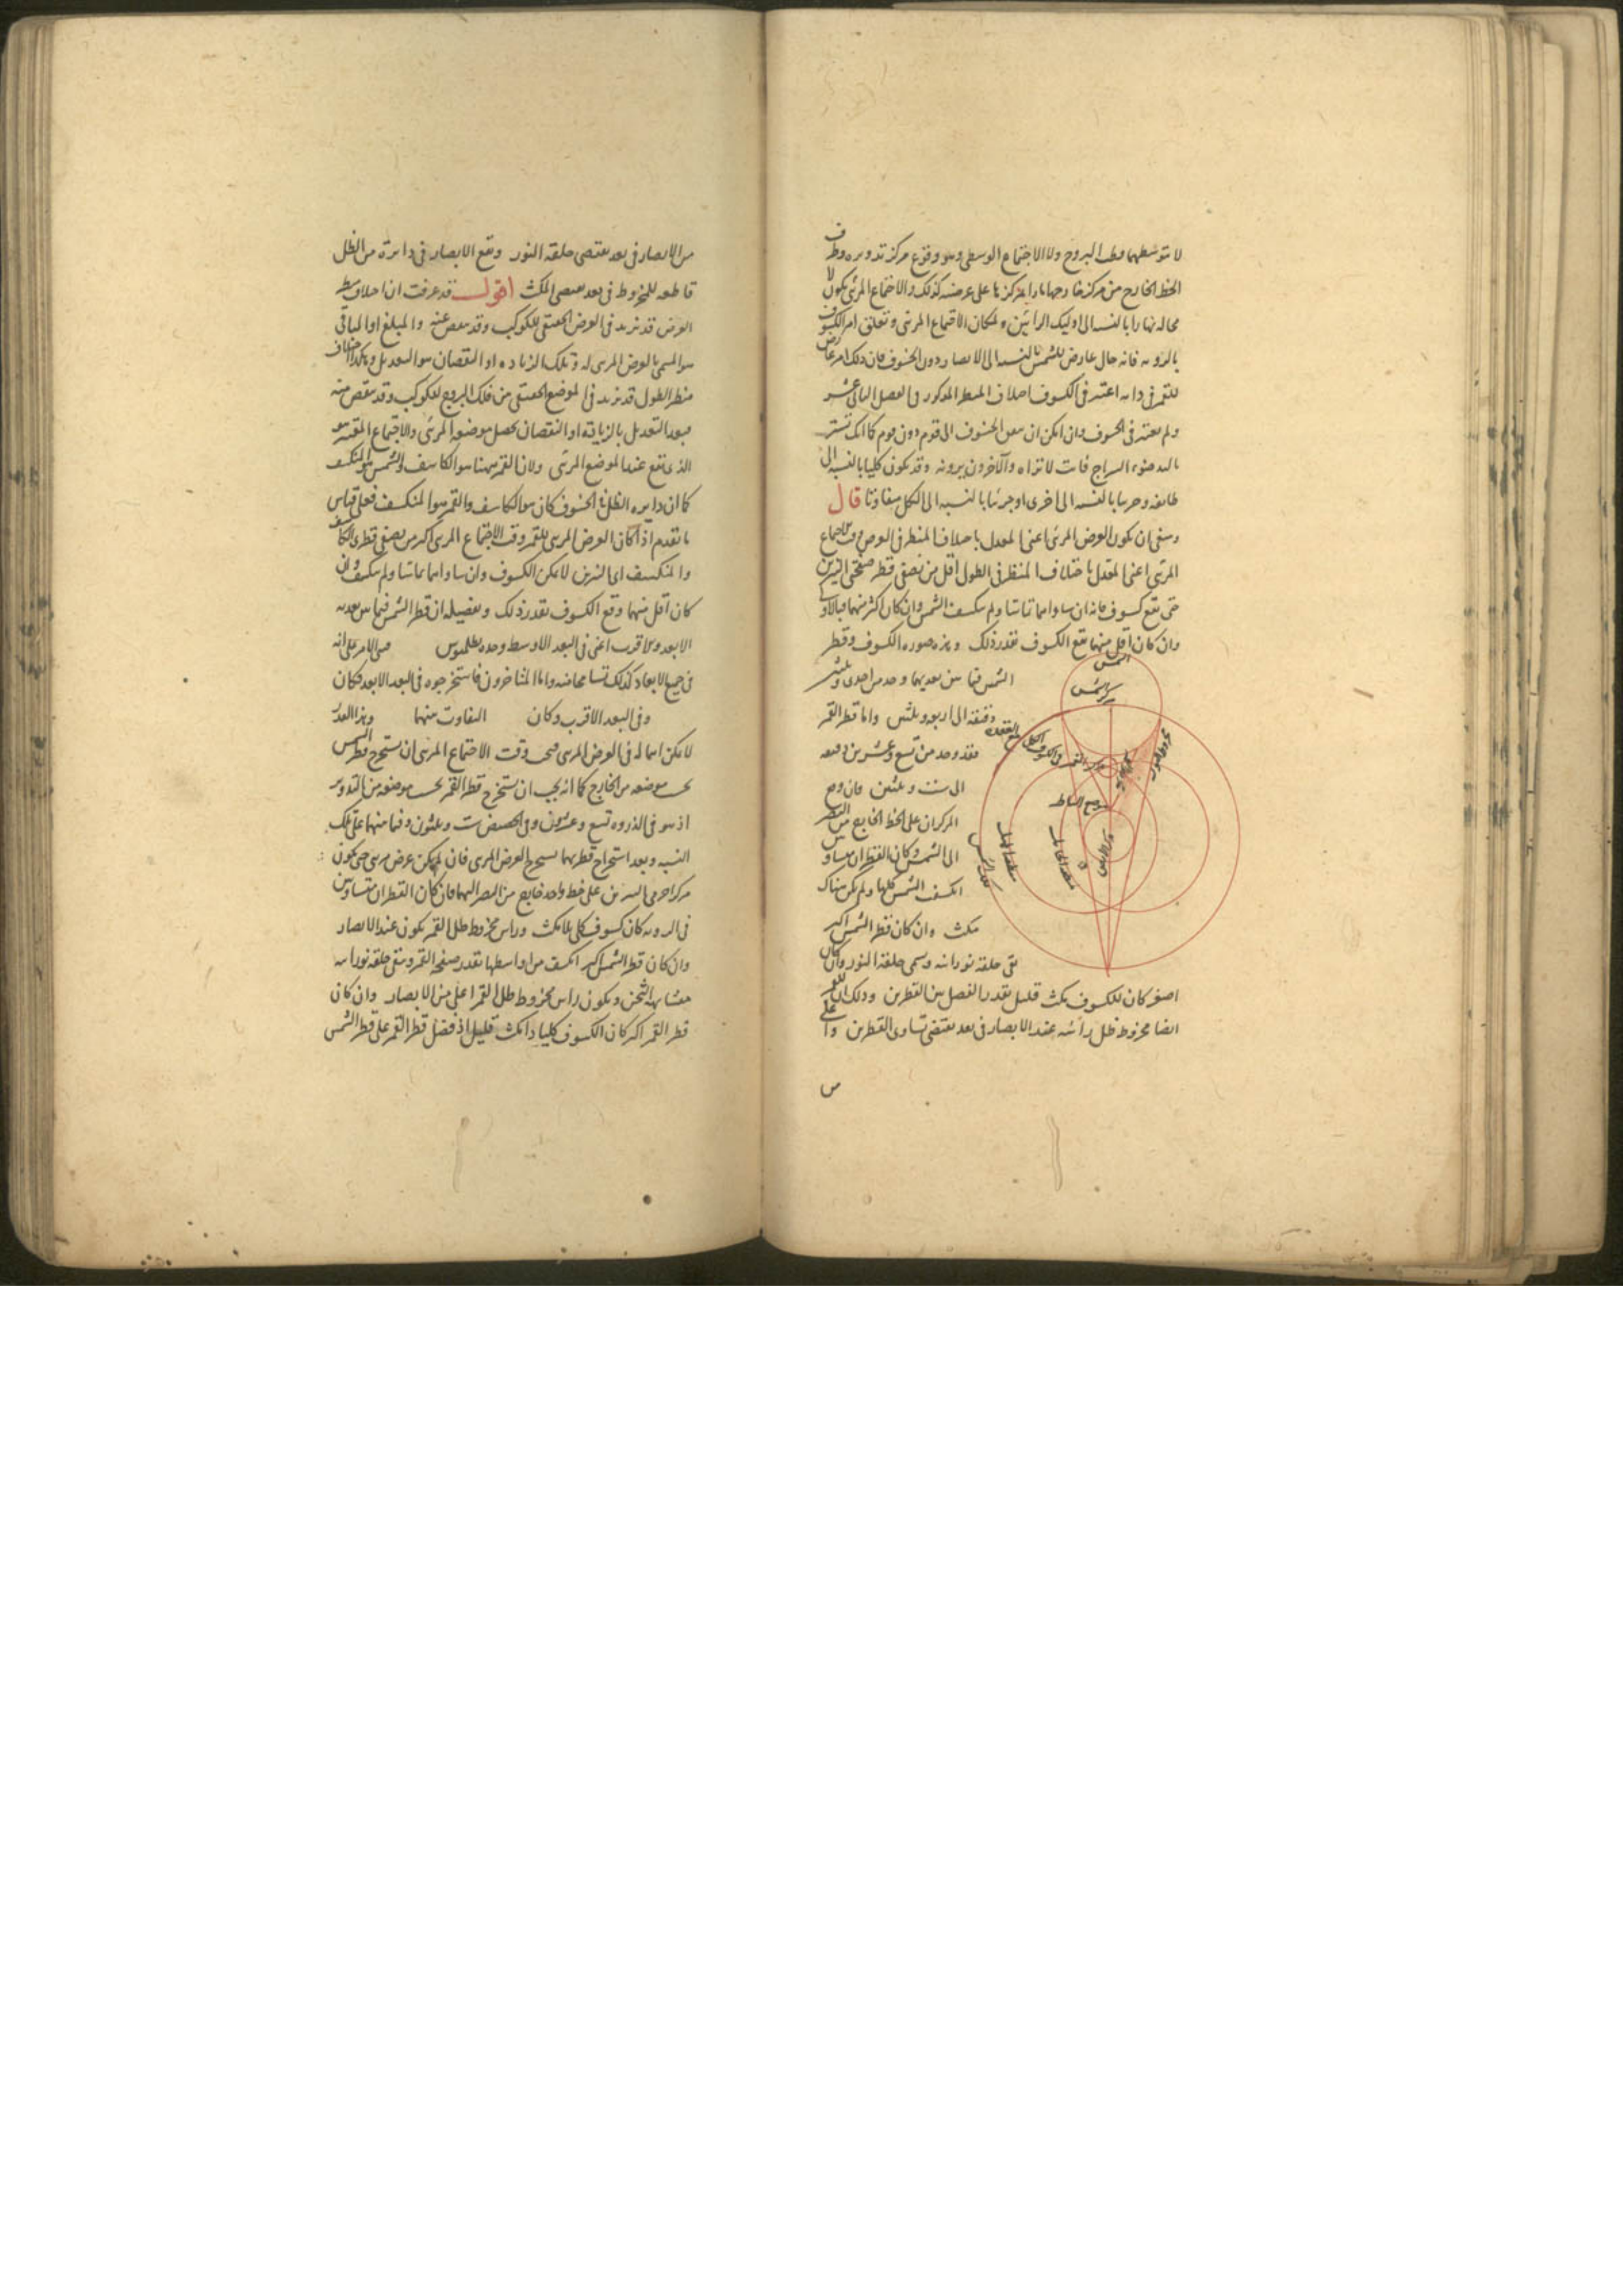 لا بتوسطهما فلك البروج ولا الاجتماع الوسطى وهو وقوع مركز تدويره وطرف
الخط الخارج من مركز خارجها مارا بمركزها على عرضه كذلك والاجتماع المرئى يكون لا
محالة نهارا بالنسبة الى اوليك الرائين لمكان الاجتماع المرئى وتعلق امر الكسوف
بالرؤية فانه حال عارض للشمس بالنسبة الى الابصار دون الخسوف فان ذلك امر عارض
للقمر فى ذاته اعتبر فى الكسوف اختلاف المنظر المذكور فى الفصل الثانى عشر
ولم يعتبر فى الخسوف وان امكن ان يعين الخسوف الى قوم دون قوم كما انك تستر
باليد ضوء السراج فانت لا تراه والآخرون يرونه وقد يكون كليا بالنسبة الى
طائفة وجزئيا بالنسبة الى اخرى او جزئيا بالنسبة الى الكل متفاوتا قال
وينبغى ان يكون العرض المرئى اعنى المعدل باختلاف المنظر فى العرض وقت الاجتماع
المرئى اعنى المعدل باختلاف المنظر فى الطول اقل من نصفى قطر صفحتى النيرين
حتى يقع كسوف فانه ان ساواهما تماسا ولم ينكسف الشمس وان كان اكثر منهما فبالاولى
وان كان اقل منهما يقع الكسوف بقدر ذلك وهذه صورة الكسوف وقطر
الشمس فيما بين بعديها وجد من احدى وثلثين
دقيقة الى اربعة وثلثين واما قطر القمر
فقد وجد من تسع وعشرين دقيقة
الى ست وثلثين فان وقع
المركزان على الخط الخارج من البصر
الى الشمس وكان القطران متساويين
انكسف الشمس كلها ولم يكن هناك
مكث وان كان قطر الشمس اكبر
بقى حلقة نورانية وسمى حلقة النور وان كان
اصغر كان للكسوف مكث قليل بقدر الفصل بين القطرين وذلك ان للقمر
ايضا مخروط ظل رأسه عند الابصار فى بعد يقتضى تساوى القطرين واعلى
من
الشمس
مركز الشمس
موضع الناظر
مركز الارض
فلك الشمس
من الابصار فى بعد يقتضى حلقة النور ويقع الابصار فى دائرة من الظل
قاطعة للمخروط فى بعد يقتضى المكث اقول قد عرفت ان اختلاف منظر
العرض قد يزيد فى العرض الحقيقى للكوكب وقد ينقص عنه والمبلغ او الباقى
هو المسمى بالعرض المرئى له وتلك الزيادة او النقصان هو التعديل وهكذا اختلاف
منظر الطول قد يزيد فى الموضع الحقيقى من فلك البروج للكوكب وقد ينقص منه
فبعد التعديل بالزيادة او النقصان يحصل موضعه المرئى والاجتماع المعتبر هو
الذى يقع عند الموضع المرئى ولان القمر ههنا هو الكاسف والشمس هو المنكسف
كما ان دائرة الظل فى الخسوف كان هو الكاسف والقمر هو المنكسف فعلى قياس
ما تقدم اذا كان العرض المرئى للقمر وقت الاجتماع المرئى اكبر من نصفى قطرى الكاسف
والمنكسف اى النيرين لا يمكن الكسوف وان ساواهما تماسا ولم ينكسف وان
كان اقل منهما وقع الكسوف بقدر ذلك وتفصيله ان قطر الشمس فيما بين بعديه
الابعد والاقرب اعنى فى البعد الاوسط وجده بطلميوس فبنى الامر على انه
فى جميع الابعاد كذلك تسامحا منه واما المتأخرون فاستخرجوه فى البعد الابعد فكان
وفى البعد الاقرب وكان التفاوت بينهما وبهذا القدر
لا يمكن اهماله فى العرض المرئى فيجب وقت الاجتماع المرئى ان يستخرج قطر الشمس
بحسب موضعه من الخارج كما انه يجب ان يستخرج قطر القمر بحسب موضعه من التدوير
اذ هو فى الذروة تسع وعشرون وفى الحضيض ست وثلثون وفيما بينهما على تلك
النسبة وبعد استخراج قطريهما يستخرج العرض المرئى فان لم يكن عرض مرئى حتى يكون
مركزا جرمى النيرين على خط واحد خارج من البصر اليهما فان كان القطران متساويين
فى الرؤية كان كسوف كلى بلا مكث ورأس مخروط ظل القمر يكون عند الابصار
وان كان قطر الشمس اكبر انكسف من اواسطها بقدر صفحة القمر وتبقى حلقة نورانية
متشابهة الثخن ويكون رأس مخروط ظل القمر اعلى من الابصار وان كان
قطر القمر اكبر كان الكسوف كليا ذا مكث قليل اذ فضل قطر القمر على قطر الشمس